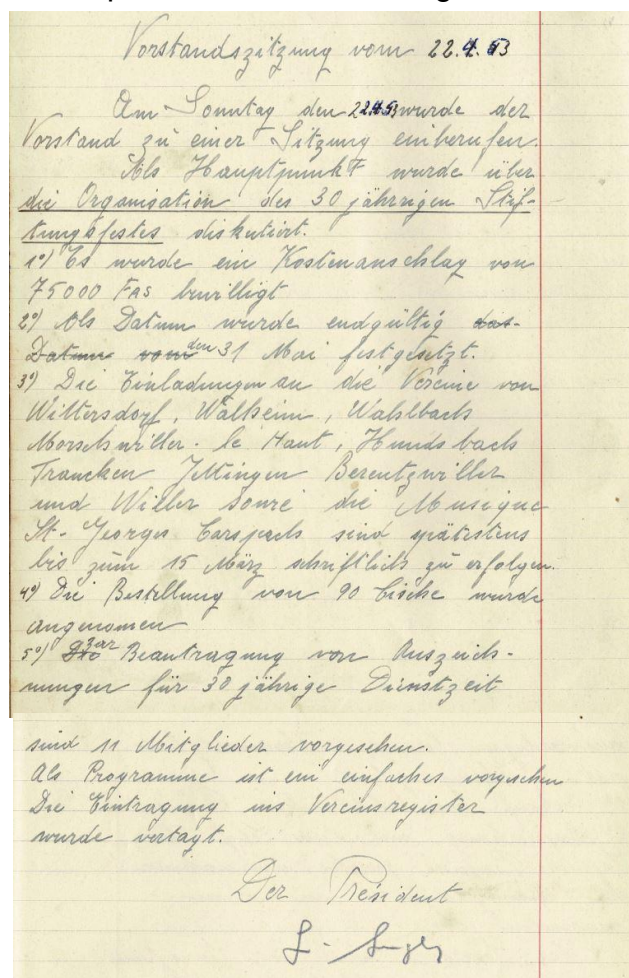 Vorstandszitzung vom 22.4.53
Am Sonntag den 22.4.53 wurde der
Vorstand zu einer Sitzung einberufen.
Als Hauptpunkt wurde über
die Organisation des 30 jährigen Stif-
tungsfestes diskutiert.
1°) Es wurde ein Kostenanschlag von
75000 Frs bewilligt
2°) Als Datum wurde endgültig das
Datum vom den 31 Mai festgesetzt.
3°) Die Einladungen an die Vereine von
Wittersdorf, Walheim, Wahlbach
Morschwiller-le Haut, Hundsbach
Francken Jettingen Berentzwiller
und Willer sowie die Musique
St-Georges Carspach sind spätestens
bis zum 15 März schriftlich zu erfolgen.
4°) Die Bestellung von 90 Tische wurde
angenomen
5°) Zur Beantragung von Auszeich-
nungen für 30 jährige Dienstzeit
sind 11 Mitglieder vorgesehen.
Als Programme ist ein einfaches vorgesehen
Die Eintragung ins Vereinsregister
wurde vertagt.
Der Président